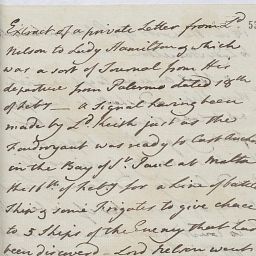 Extract of a private Letter from Ld
Nelson to Lady Hamilton, which
was a sort of Journal from his
departure from Palermo dated 18th
of Feby — a Signal having been
made by Ld Keith just as the
Foudroyant was ready to Cast Anchor
in the Bay of St Paul at Malta
the 16th of Feby for a Line of battle
Ship & some Frigates to give chace
to 5 Ships of the Enemy that had
been discovered — Lord Nelson went